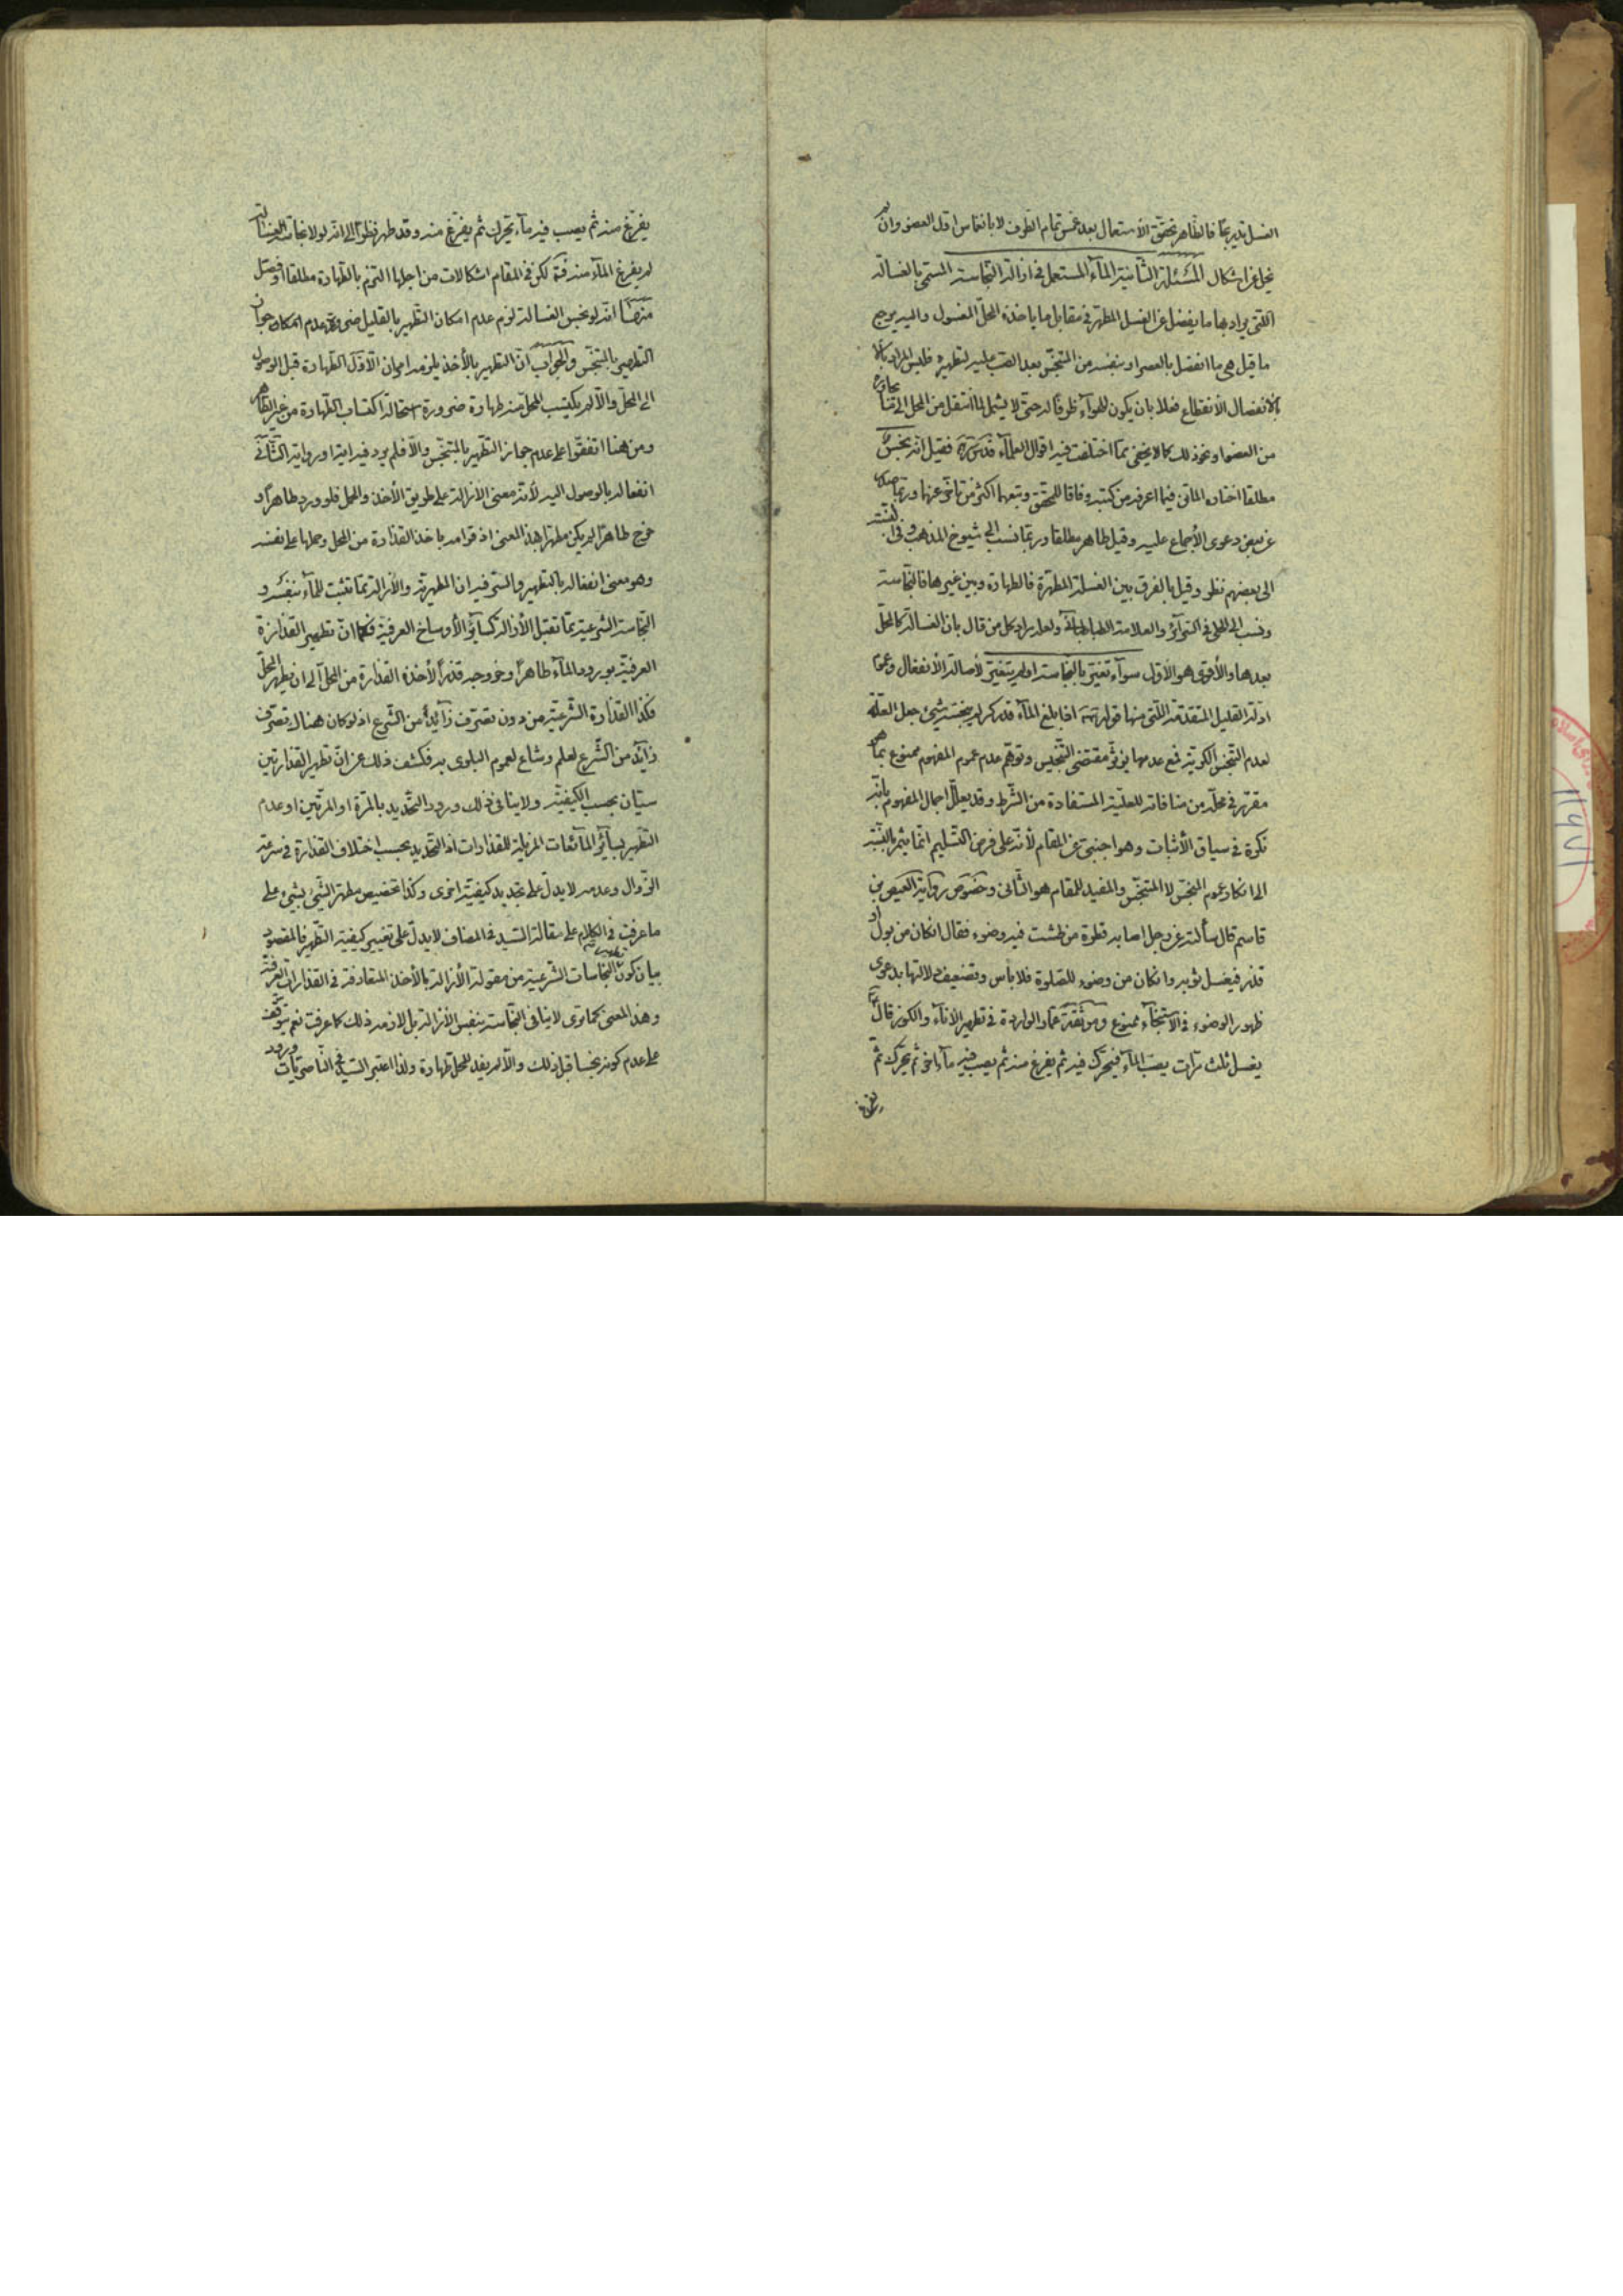 الغسل تدريجا فالظاهر تحقق الاستعمال بعد غمس تمام الظرف لا بانغماس اول العضو وان لم
يخل عن اشكال المسئلة الثانية الماء المستعمل في ازالة النجاسة المسمى بالغسالة
اللتي يراد بها ما ينفصل عن الغسل المطهر في مقابل ما ياخذه المحل المغسول واليه يرجع
ما قيل هي ما انفصل بالعصر او بنفسه من المتنجس بعد الصب عليه لتطهيره فليس المراد
بالانفصال الانقطاع فعلا بان يكون للهواء ظرفا له حتى لا يشمل لما انتقل من المحل الى ما يجاوره
من العضو او نحو ذلك كما لا يخفى مما اختلفت فيه اقوال العلماء قدس سرهم فقيل انه نجس
مطلقا اختاره الماتن فيما اعرفه من كتبه وفاقا للمحقق وتبعهما اكثر من تاخر عنهما وربما
عن بعض دعوى الاجماع عليه وقيل طاهر مطلقا وربما نسب الى شيوخ المذهب وفي النسبة
الى بعضهم نظر وقيل بالفرق بين الغسلة المطهرة فالطهارة وبين غيرها فالنجاسة
ونسب الى الحلي في السرائر والعلامة الطباطبائي ولعله مراد كل من قال بان الغسالة كالمحل
بعدها والأقوى هو الأول سواء تغير بالنجاسة او لم يتغير لأصالة الأنفعال وعموم
ادلة القليل المتقدمة اللتي منها قوله اذا بلغ الماء قدر كر لم ينجسه شيئ جعل العلة
لعدم التنجس الكرية فمع عدمها يؤثر مقتضى التنجيس وتوهم عدم عموم المفهوم ممنوع بما هو
مقرر في محله من منافاته للعلية المستفادة من الشرط وقد يعلل اجمال المفهوم بانه
نكرة في سياق الأثبات وهو اجنبي عن المقام لأنه على فرض التسليم انما يثمر بالنسبة
الى انكار عموم المنجس لا المتنجس والمفيد للمقام هو الثاني وخصوص رواية العيص بن
قاسم قال سألته عن رجل اصابه قطرة من طشت فيه وضوء فقال ان كان من بول او
قذر فيغسل ثوبه وان كان من وضوء للصلوة فلا باس وتضعيف دلالتها بدعوى
ظهور الوضوء في الاستنجاء ممنوع وموثقة عمار الواردة في تطهير الاناء والكوز قال
يغسل ثلث مرات يصب الماء فيحرك فيه ثم يفرغ منه ثم يصب فيه ماء اخر ثم يحرك ثم
يفرغ
يفرغ منه ثم يصب فيه ماء يحرك ثم يفرغ منه وقد طهر نظرا الى انه لولا نجاسة الغسالة
لم يفرغ الماء منه لكن في المقام اشكالات من اجلها التزم بالطهارة مطلقا او فصل
منها انه لو نجس الغسالة لزم عدم امكان التطهير بالقليل ضرورة عدم امكان جواز
التطهير بالمتنجس والجواب ان التطهير بالأخذ يلزمه امران الأول الطهارة قبل الوصول
الى المحل والا لم يكتسب المحل منه طهارة ضرورة استحالة اكتساب الطهارة من غير الطاهر
ومن هنا اتفقوا على عدم جواز التطهير بالمتنجس والا فلم يرد فيه اية او رواية الثاني
انفعاله بالوصول اليه لأنه معنى الازالة على طريق الأخذ والحمل فلو ورد طاهرا و
خرج طاهرا لم يكن مطهرا بهذا المعنى اذ قوامه باخذ القذارة من المحل وحملها على نفسه
وهو معنى انفعاله بالتطهير والسر فيه ان المطهرية والأزالة مما تثبت للماء بنفسه و
النجاسة الشرعية مما تقبل الأزالة كسائر الأوساخ العرفية فكما ان تطهير القذارة
العرفية بورود الماء طاهرا وخروجه قذرا لأخذه القذارة من المحل الى ان يطهر المحل
فكذا القذارة الشرعية من دون تصرف زائد من الشرع اذ لو كان هناك تصرف
زائد من الشرع لعلم وشاع لعموم البلوى به فكشف ذلك عن ان تطهير القذارتين
سيان بحسب الكيفية ولا ينافي ذلك ورود التحديد بالمرة او المرتين او عدم
التطهير بسائر المائعات المزيلة للقذارات اذ التحديد بحسب اختلاف القذارة في سرعة
الزوال وعدمه لا يدل على تجديد كيفية اخرى وكذا تخصيص مطهر الشيئ بشيئ على
ما عرفت في الكلام على مقالة السيد في المضاف لا يدل على تغيير كيفية التطهير فالمقصود
بيان كون تطهير النجاسات الشرعية من مقولة الأزالة بالأخذ المتعارفة في القذارات العرفية
وهذا المعنى كما ترى لا ينافي النجاسة بنفس الأزالة بل لازمه ذلك كما عرفت نعم يتوقف
على عدم كونه نجسا قبل ذلك والا لم يفد للمحل طهارة ولذا اعتبر السيد في الناصريات ورود